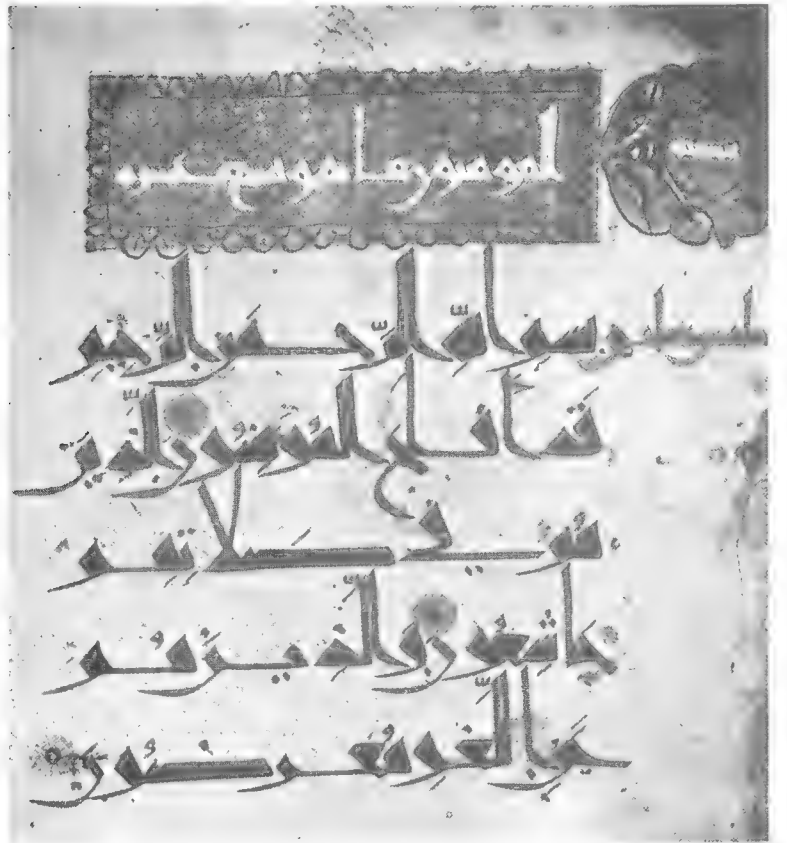 المومنون
بسم الله الرحمن الرحيم
قد أفلح المؤمنون الذين
هم في صلاتهم
خاشعون والذين هم
عن اللغو معرضون